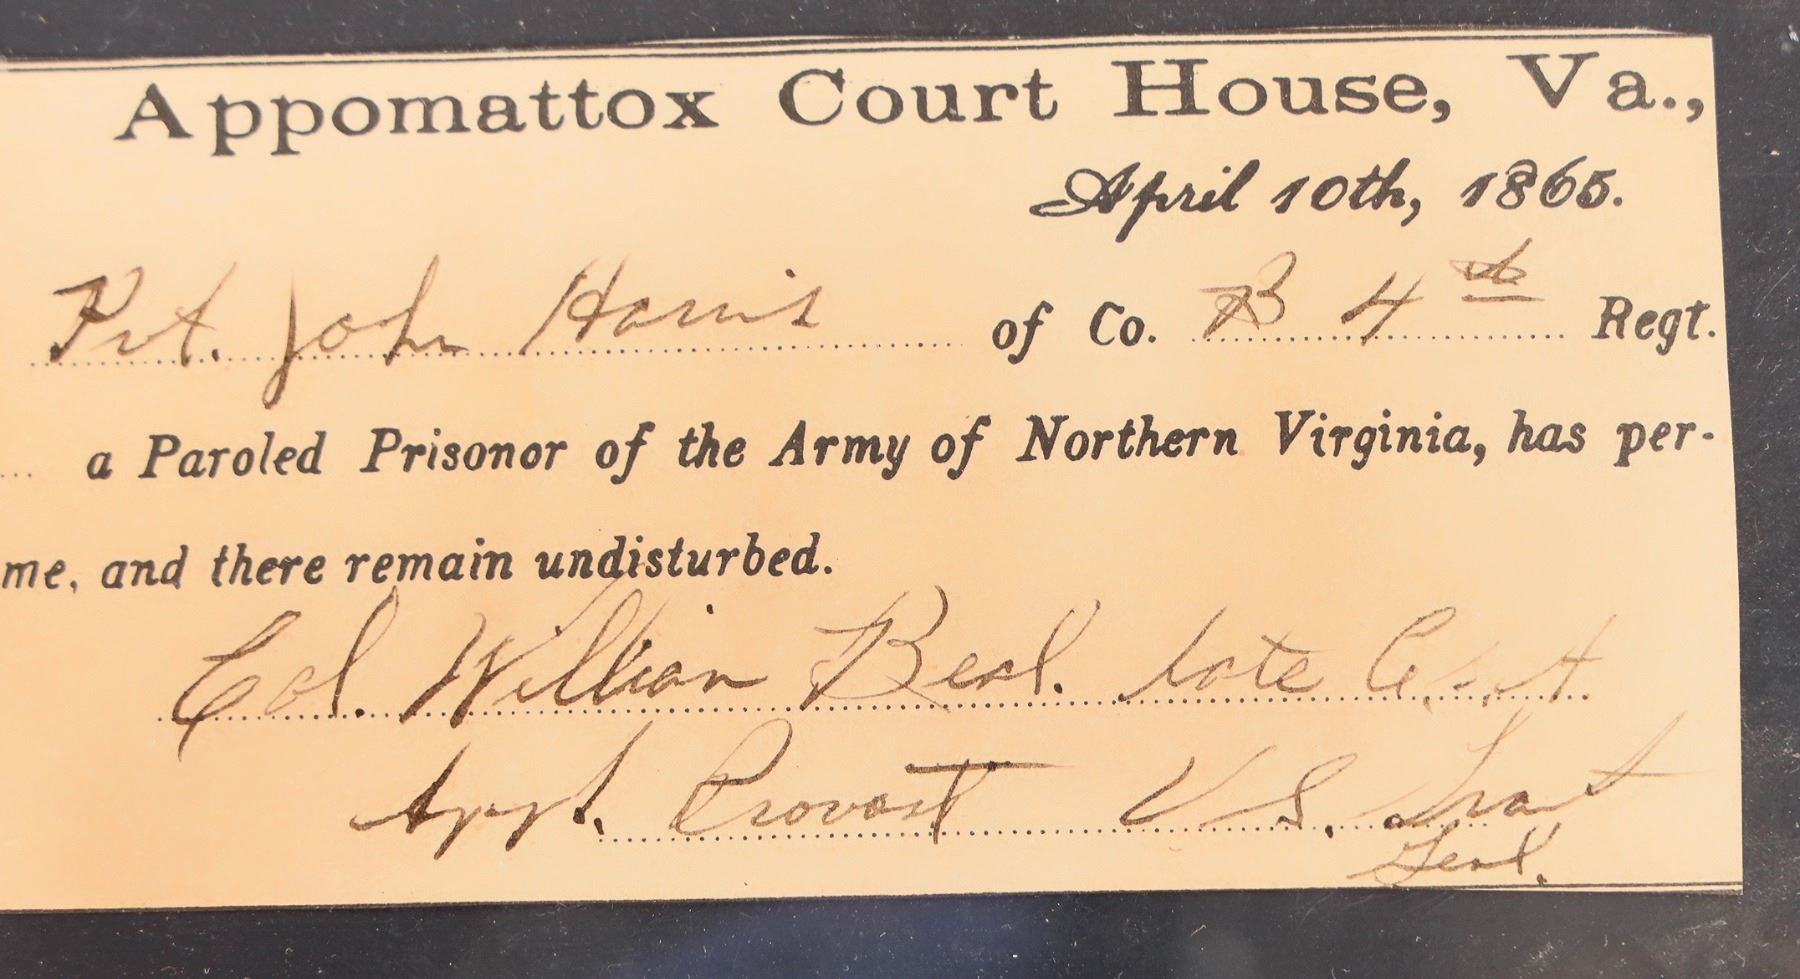 Appomattox Court House, Va.,
April 10th, 1865.
Pvt. John Harris of Co. B 4th Regt.
a Paroled Prisonor of the Army of Northern Virginia, has per-
me, and there remain undisturbed.
Col. William Beal. late
Appt. Provost U S.
Genl.